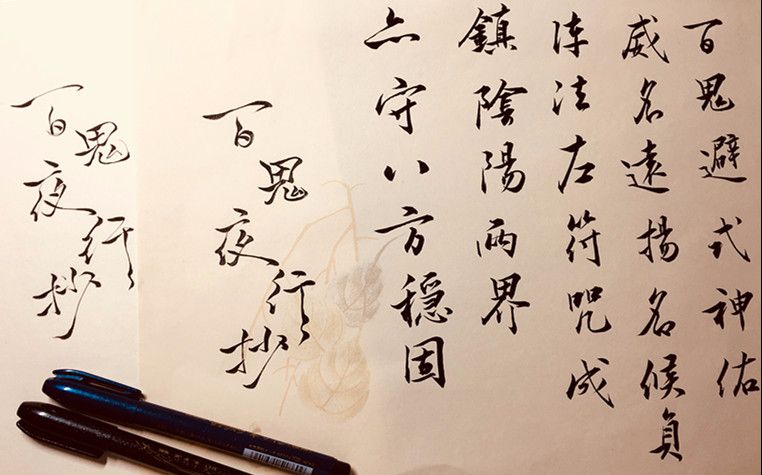 百鬼避式神佑
威名遠揚名候負
陣法左符咒成
鎮陰陽兩界
亦守八方穩固
百鬼夜行抄
百鬼夜行抄